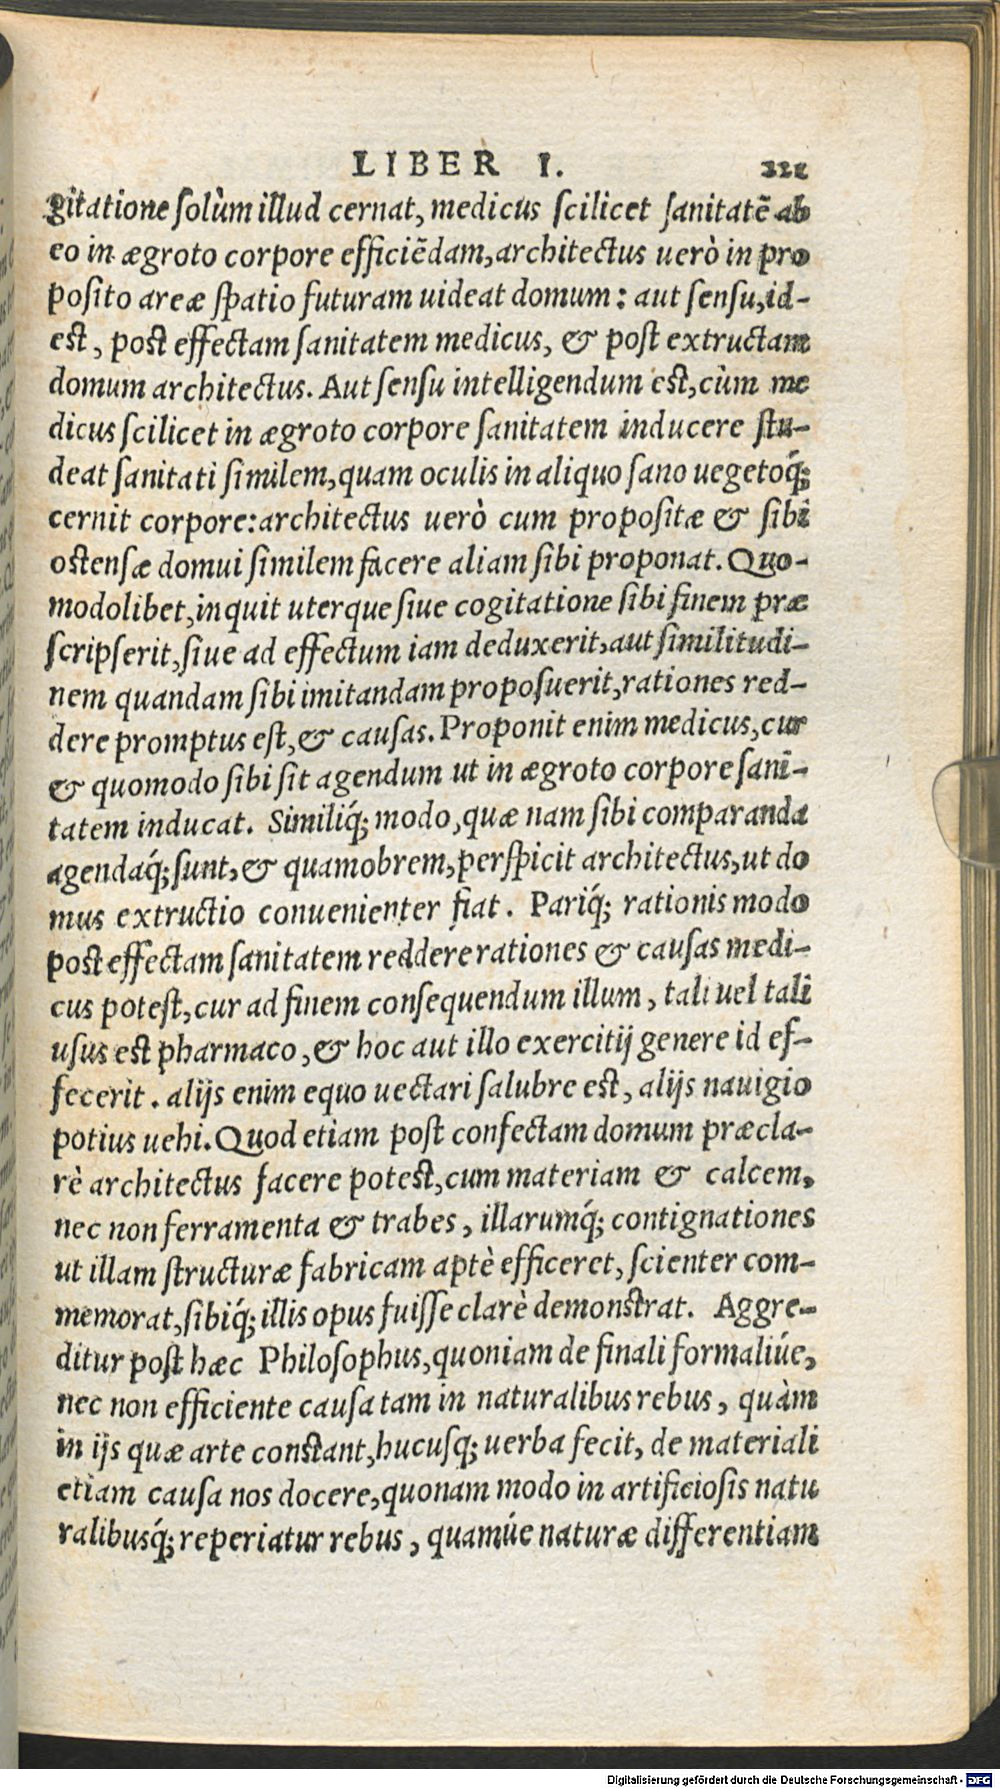 LIBER I. 221
gitatione ſolùm illud cernat, medicus ſcilicet ſanitatē ab
eo in ægroto corpore efficiēdam, architectus uerò in pro
poſito areæ ſpatio futuram uideat domum: aut ſenſu, id-
eſt, poſt effectam ſanitatem medicus, & poſt extructam
domum architectus. Aut ſenſu intelligendum eſt, cùm me
dicus ſcilicet in ægroto corpore ſanitatem inducere ſtu-
deat ſanitati ſimilem, quam oculis in aliquo ſano uegetoq́;
cernit corpore: architectus uerò cum propoſitæ & ſibi
oſtenſæ domui ſimilem facere aliam ſibi proponat. Quo-
modolibet, inquit uterque ſiue cogitatione ſibi finem præ
ſcripſerit, ſiue ad effectum iam deduxerit, aut ſimilitudi-
nem quandam ſibi imitandam propoſuerit, rationes red-
dere promptus eſt, & cauſas. Proponit enim medicus, cur
& quomodo ſibi ſit agendum ut in ægroto corpore ſani-
tatem inducat. Similiq́; modo, quæ nam ſibi comparanda
agendaq́; ſunt, & quamobrem, perſpicit architectus, ut do
mus extructio conuenienter fiat. Pariq́; rationis modo
poſt effectam ſanitatem reddere rationes & cauſas medi-
cus poteſt, cur ad finem conſequendum illum, tali uel tali
uſus eſt pharmaco, & hoc aut illo exercitij genere id ef-
fecerit. alijs enim equo uectari ſalubre eſt, alijs nauigio
potius uehi. Quod etiam poſt confectam domum præcla-
rè architectus facere poteſt, cum materiam & calcem,
nec non ferramenta & trabes, illarumq́; contignationes
ut illam ſtructuræ fabricam aptè efficeret, ſcienter com-
memorat, ſibiq́; illis opus fuiſſe clarè demonſtrat. Aggre-
ditur poſt hæc Philoſophus, quoniam de finali formaliúe,
nec non efficiente cauſa tam in naturalibus rebus, quàm
in ijs quæ arte conſtant, hucuſq; uerba fecit, de materiali
etiam cauſa nos docere, quonam modo in artificioſis natu
ralibusq́; reperiatur rebus, quamúe naturæ differentiam
Digitalisierung gefördert durch die Deutsche Forschungsgemeinschaft - DFG